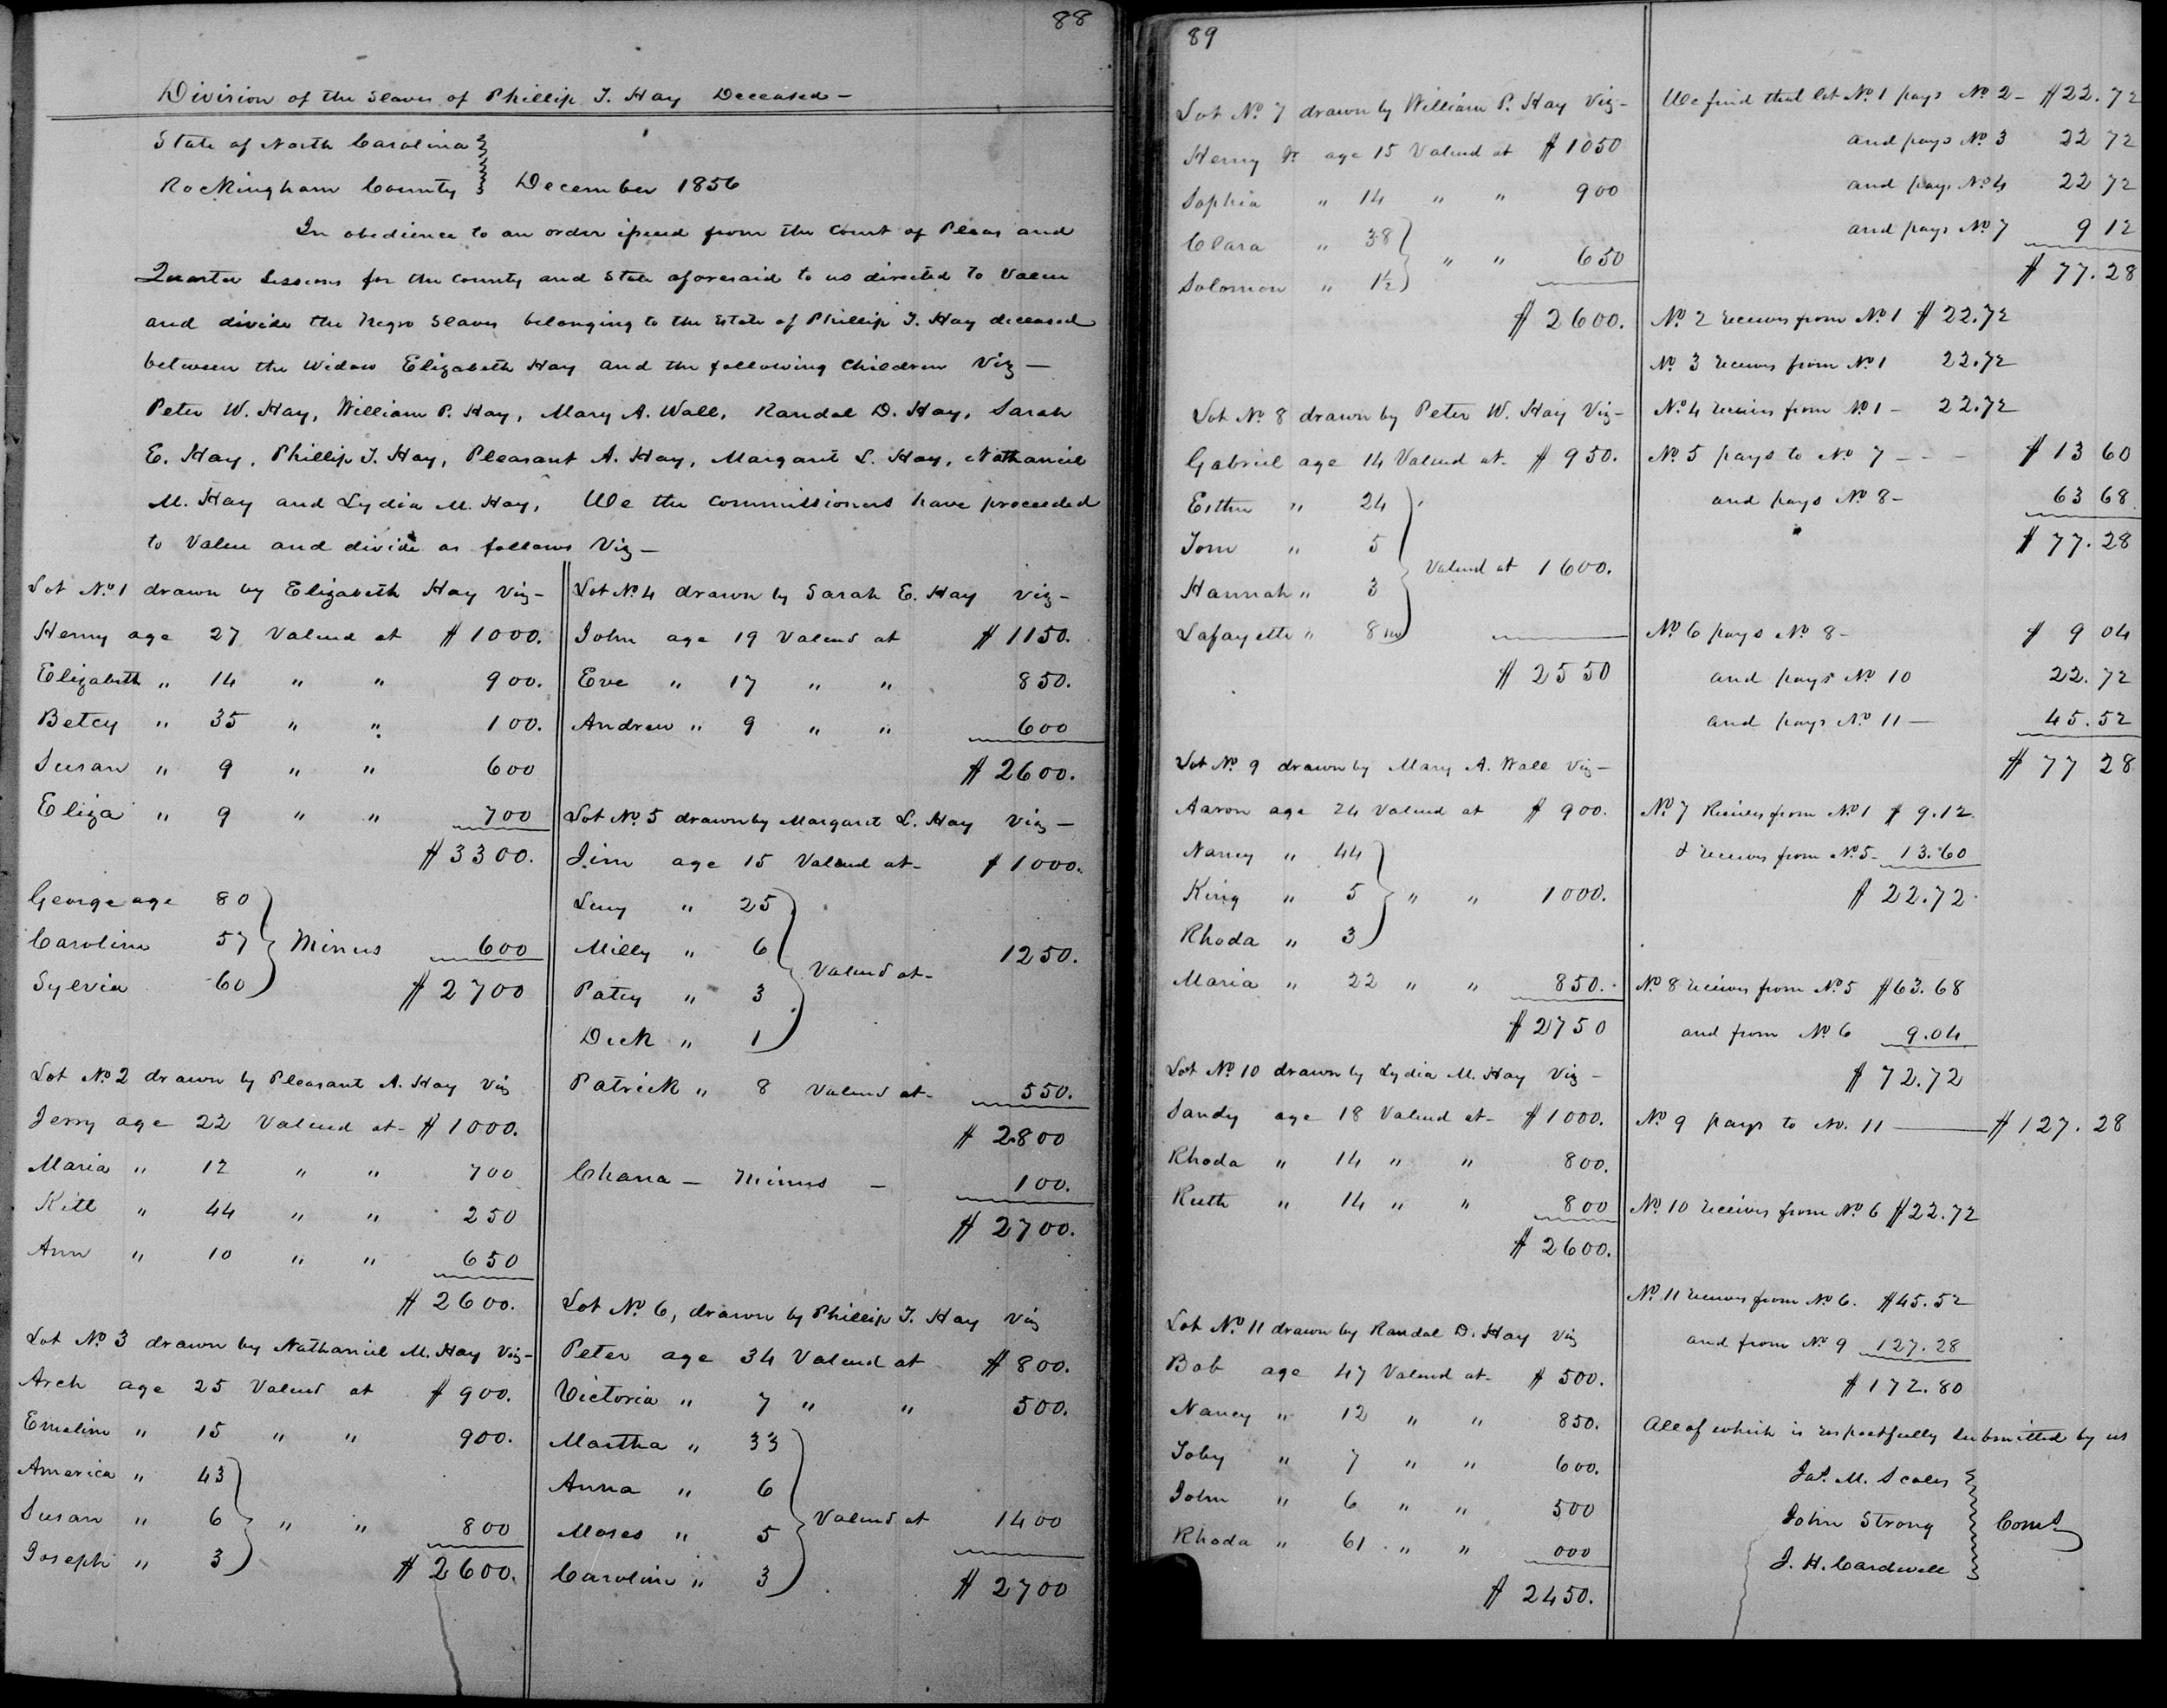 88
Division of the Slaves of Phillip J. Hay Deceased —
State of North Carolina
Rockingham County } December 1856
In obedience to an order issued from the Court of Pleas and
Quarter Sessions for the County and State aforesaid to us directed to Value
and divide the Negro Slaves belonging to the Estate of Phillip J. Hay deceased
between the Widow Elizabeth Hay and the following Children Viz —
Peter W. Hay, William P. Hay, Mary A. Wall, Randal D. Hay, Sarah
E. Hay, Phillip J. Hay, Pleasant A. Hay, Margaret L. Hay, Nathaniel
M. Hay and Lydia M. Hay, We the Commissioners have proceeded
to Value and divide as follows Viz —
Lot No. 1 drawn by Elizabeth Hay Viz —
Henry age 27 Valued at $1000.
Elizabeth " 14 " " 900.
Betcy " 35 " " 100.
Susan " 9 " " 600
Eliza " 9 " " 700
$3300.
George age 80
Caroline 57 } Minus 600
Sylvia 60 $2700
Lot No. 2 drawn by Pleasant A. Hay Viz
Jerry age 22 Valued at - $1000.
Maria " 12 " " 700
Kitt " 44 " " 250
Ann " 10 " " 650
$2600.
Lot No. 3 drawn by Nathaniel M. Hay Viz —
Arch age 25 Valued at $900.
Emeline " 15 " " 900.
America " 43
Susan " 6 } " " 800
Joseph " 3 $2600.
Lot No. 4 drawn by Sarah E. Hay Viz —
John age 19 Valued at $1150.
Eve " 17 " " 850.
Andrew " 9 " " 600
$2600.
Lot No. 5 drawn by Margaret L. Hay Viz —
Jim age 15 Valued at - $1000.
Lucy " 25
Milly " 6 1250.
Patcy " 3 } Valued at -
Dick " 1
Patrick " 8 Valued at - 550.
$2800
Chana — Minus — 100.
$2700.
Lot No. 6, drawn by Phillip J. Hay Viz
Peter age 34 Valued at $800.
Victoria " 7 " " 500.
Martha " 33
Anna " 6
Moses " 5 } Valued at 1400
Caroline " 3 $2700
89
Lot No. 7 drawn by William P. Hay Viz —
Henry Jr. age 15 Valued at $1050
Sophia " 14 " " 900
Clara " 38 } " " 650
Solomon " 1½
$2600.
Lot No. 8 drawn by Peter W. Hay Viz —
Gabriel age 14 Valued at - $950.
Esther " 24
Tom " 5 } Valued at 1600.
Hannah " 3
Lafayette " 8 mo
$2550
Lot No. 9 drawn by Mary A. Wall Viz —
Aaron age 24 Valued at $900.
Nancy " 44
King " 5 } " " 1000.
Rhoda " 3
Maria " 22 " " 850.
$2750
Lot No. 10 drawn by Lydia M. Hay Viz —
Sandy age 18 Valued at - $1000.
Rhoda " 14 " " 800.
Ruth " 14 " " 800
$2600.
Lot No. 11 drawn by Randal D. Hay Viz
Bob age 47 Valued at - $500.
Nancy " 12 " " 850.
Toby " 7 " " 600.
John " 6 " " 500
Rhoda " 61 " " 000
$2450.
We find that lot No. 1 pays No. 2 — $22.72
and pays No. 3 22 72
and pays No. 4 22 72
and pays No. 7 9 12
$77.28
No. 2 receives from No. 1 $22.72
No. 3 receives from No. 1 22.72
No. 4 receives from No. 1 — 22.72
No. 5 pays to No. 7 - - - $13 60
and pays No. 8 — 63 68
$77.28
No. 6 pays No. 8 — $9 04
and pays No. 10 22.72
and pays No. 11 — 45.52
$77 28
No. 7 Receives from No. 1 $9.12
& receives from No. 5 - 13.60
$22.72
No. 8 receives from No. 5 $63.68
and from No. 6 9.04
$72.72
No. 9 pays to No. 11 ——— $127.28
No. 10 receives from No. 6 $22.72
No. 11 receives from No. 6. $45.52
and from No. 9 127.28
$172.80
All of which is respectfully Submitted by us
Jas. M. Scales
John Strong } Coms
J. H. Cardwell